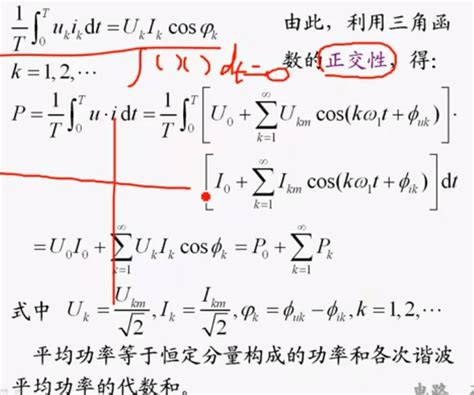 1/T ∫₀ᵀ uₖiₖdt = UₖIₖ cos φₖ
k = 1,2,⋯
∫( )( )dt=0
由此，利用三角函
数的正交性，得：
P = 1/T ∫₀ᵀ u·i dt = 1/T ∫₀ᵀ [U₀ + ∑_{k=1}^{∞} U_{km} cos(kω₁t + ϕ_{uk})]·
[I₀ + ∑_{k=1}^{∞} I_{km} cos(kω₁t + ϕ_{ik})]dt
= U₀I₀ + ∑_{k=1}^{∞} UₖIₖ cos ϕₖ = P₀ + ∑_{k=1}^{∞} Pₖ
式中 Uₖ = U_{km}/√2, Iₖ = I_{km}/√2, φₖ = ϕ_{uk} − ϕ_{ik}, k = 1,2,⋯
平均功率等于恒定分量构成的功率和各次谐波
平均功率的代数和。
电路